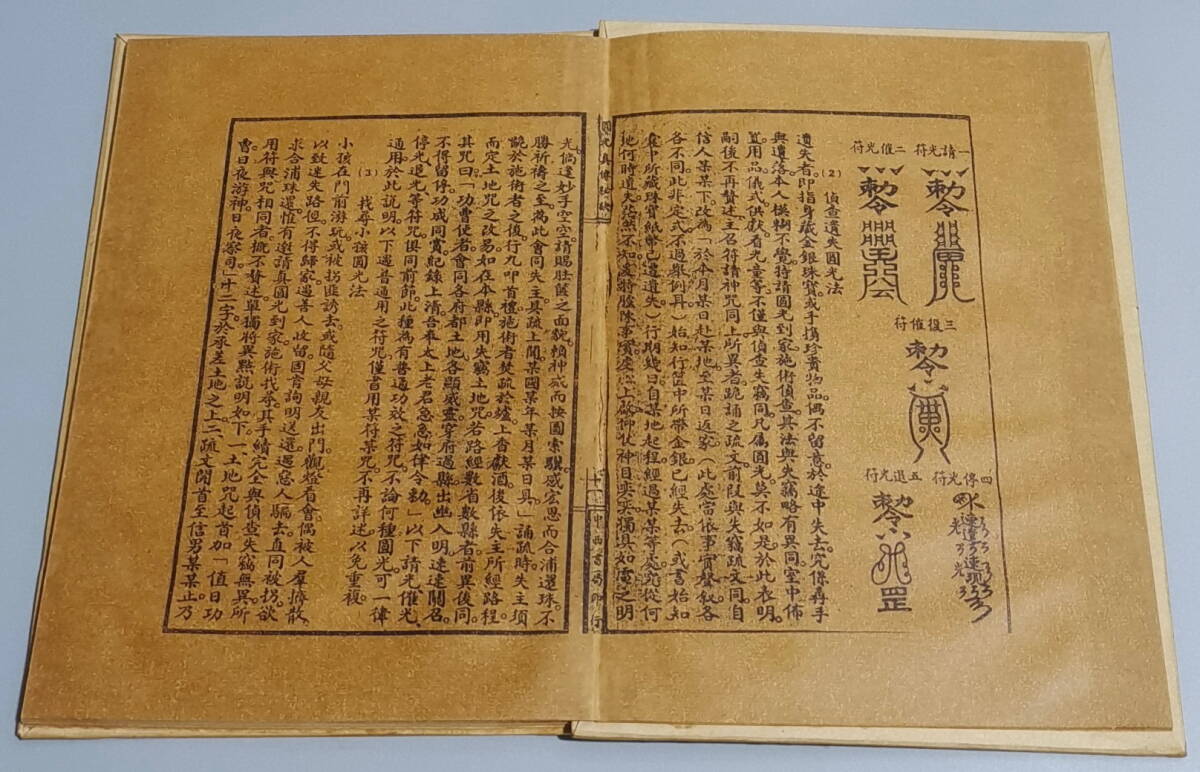 一請光符
二催光符
敕令
敕令
三復催符
敕令
四停光符
五退光符
敕令
罡
(2) 偵查遺失圓光法
遺失者。即指身藏金銀珠寶。或手攜珍貴物品。偶不留意。於途中失去。究係尋手
與遺落。本人模糊不覺。特請圓光到家施術偵查。其法與失竊略有異同。室中佈
置用品。儀式供獻。看光童等。不僅與偵查失竊同。凡屬圓光。莫不如是。於此表明。
嗣後不再贅述。主召符。請神咒同上。所異者。跪誦之疏文。前段與失竊疏文同。自
信人某某下。改為「於本月某日。赴某地。至某日返家。(此處當依事實。聲敘各
各不同。此非定式。不過舉例耳)始知行篋中所帶金銀。已經失去。(或書始知
篋中所藏珠寶紙幣。已遭遺失)行期幾日。自某地起程。經過某某等處。究從何
地何時遺失。茫然不知。
仰仗神目奕奕。獨具如電之明
圓光真傳秘訣
十一
中西書局印行
光。倘逢妙手空空。請賜肚篋之面貌。賴神威而按圖索驥。感宏恩而合浦還珠。不
勝祈禱之至。為此會同失主。具疏上聞。某國某年某月某日具。」誦疏時。失主須
跪於施術者之後。行九叩首禮。施術者焚疏於爐。上香獻酒。後依失主所經路程
而定土地咒之改易。如在本縣。即用失竊土地咒。若路經數省數縣者。前異後同。
其咒曰。「功曹使者。會同各府都土地。各顯威靈。穿府過縣。出幽入明。速速關召。
不得留停。功成同賞。紀錄上清。吾奉太上老君。急急如律令勅。」以下請光。催光。
停光。退光等符咒。俱同前節。此種為有普通功效之符咒。不論何種圓光。可一律
通用。於此說明。以下遇普通用之符咒。僅書用某符某咒。不再詳述。以免重複。
(3) 找尋小孩圓光法
小孩在門前游玩。或被拐匪誘去。或隨父母親友出門。觀燈看會。偶被人羣擠散。
以致迷失路徑。不得歸家。遇善人收留。固肯詢明送還。遇惡人騙去。直同被拐。欲
求合浦珠還。惟有邀請真圓光。到家施術找尋。其手續完全與偵查失竊無異。所
用符與咒相同者。概不贅述。單獨將異點說明如下。一。土地咒起首。加「值日功
曹日夜游神。日夜察司。」十二字。於承差土地之上。二。疏文開首至信男某某止。乃